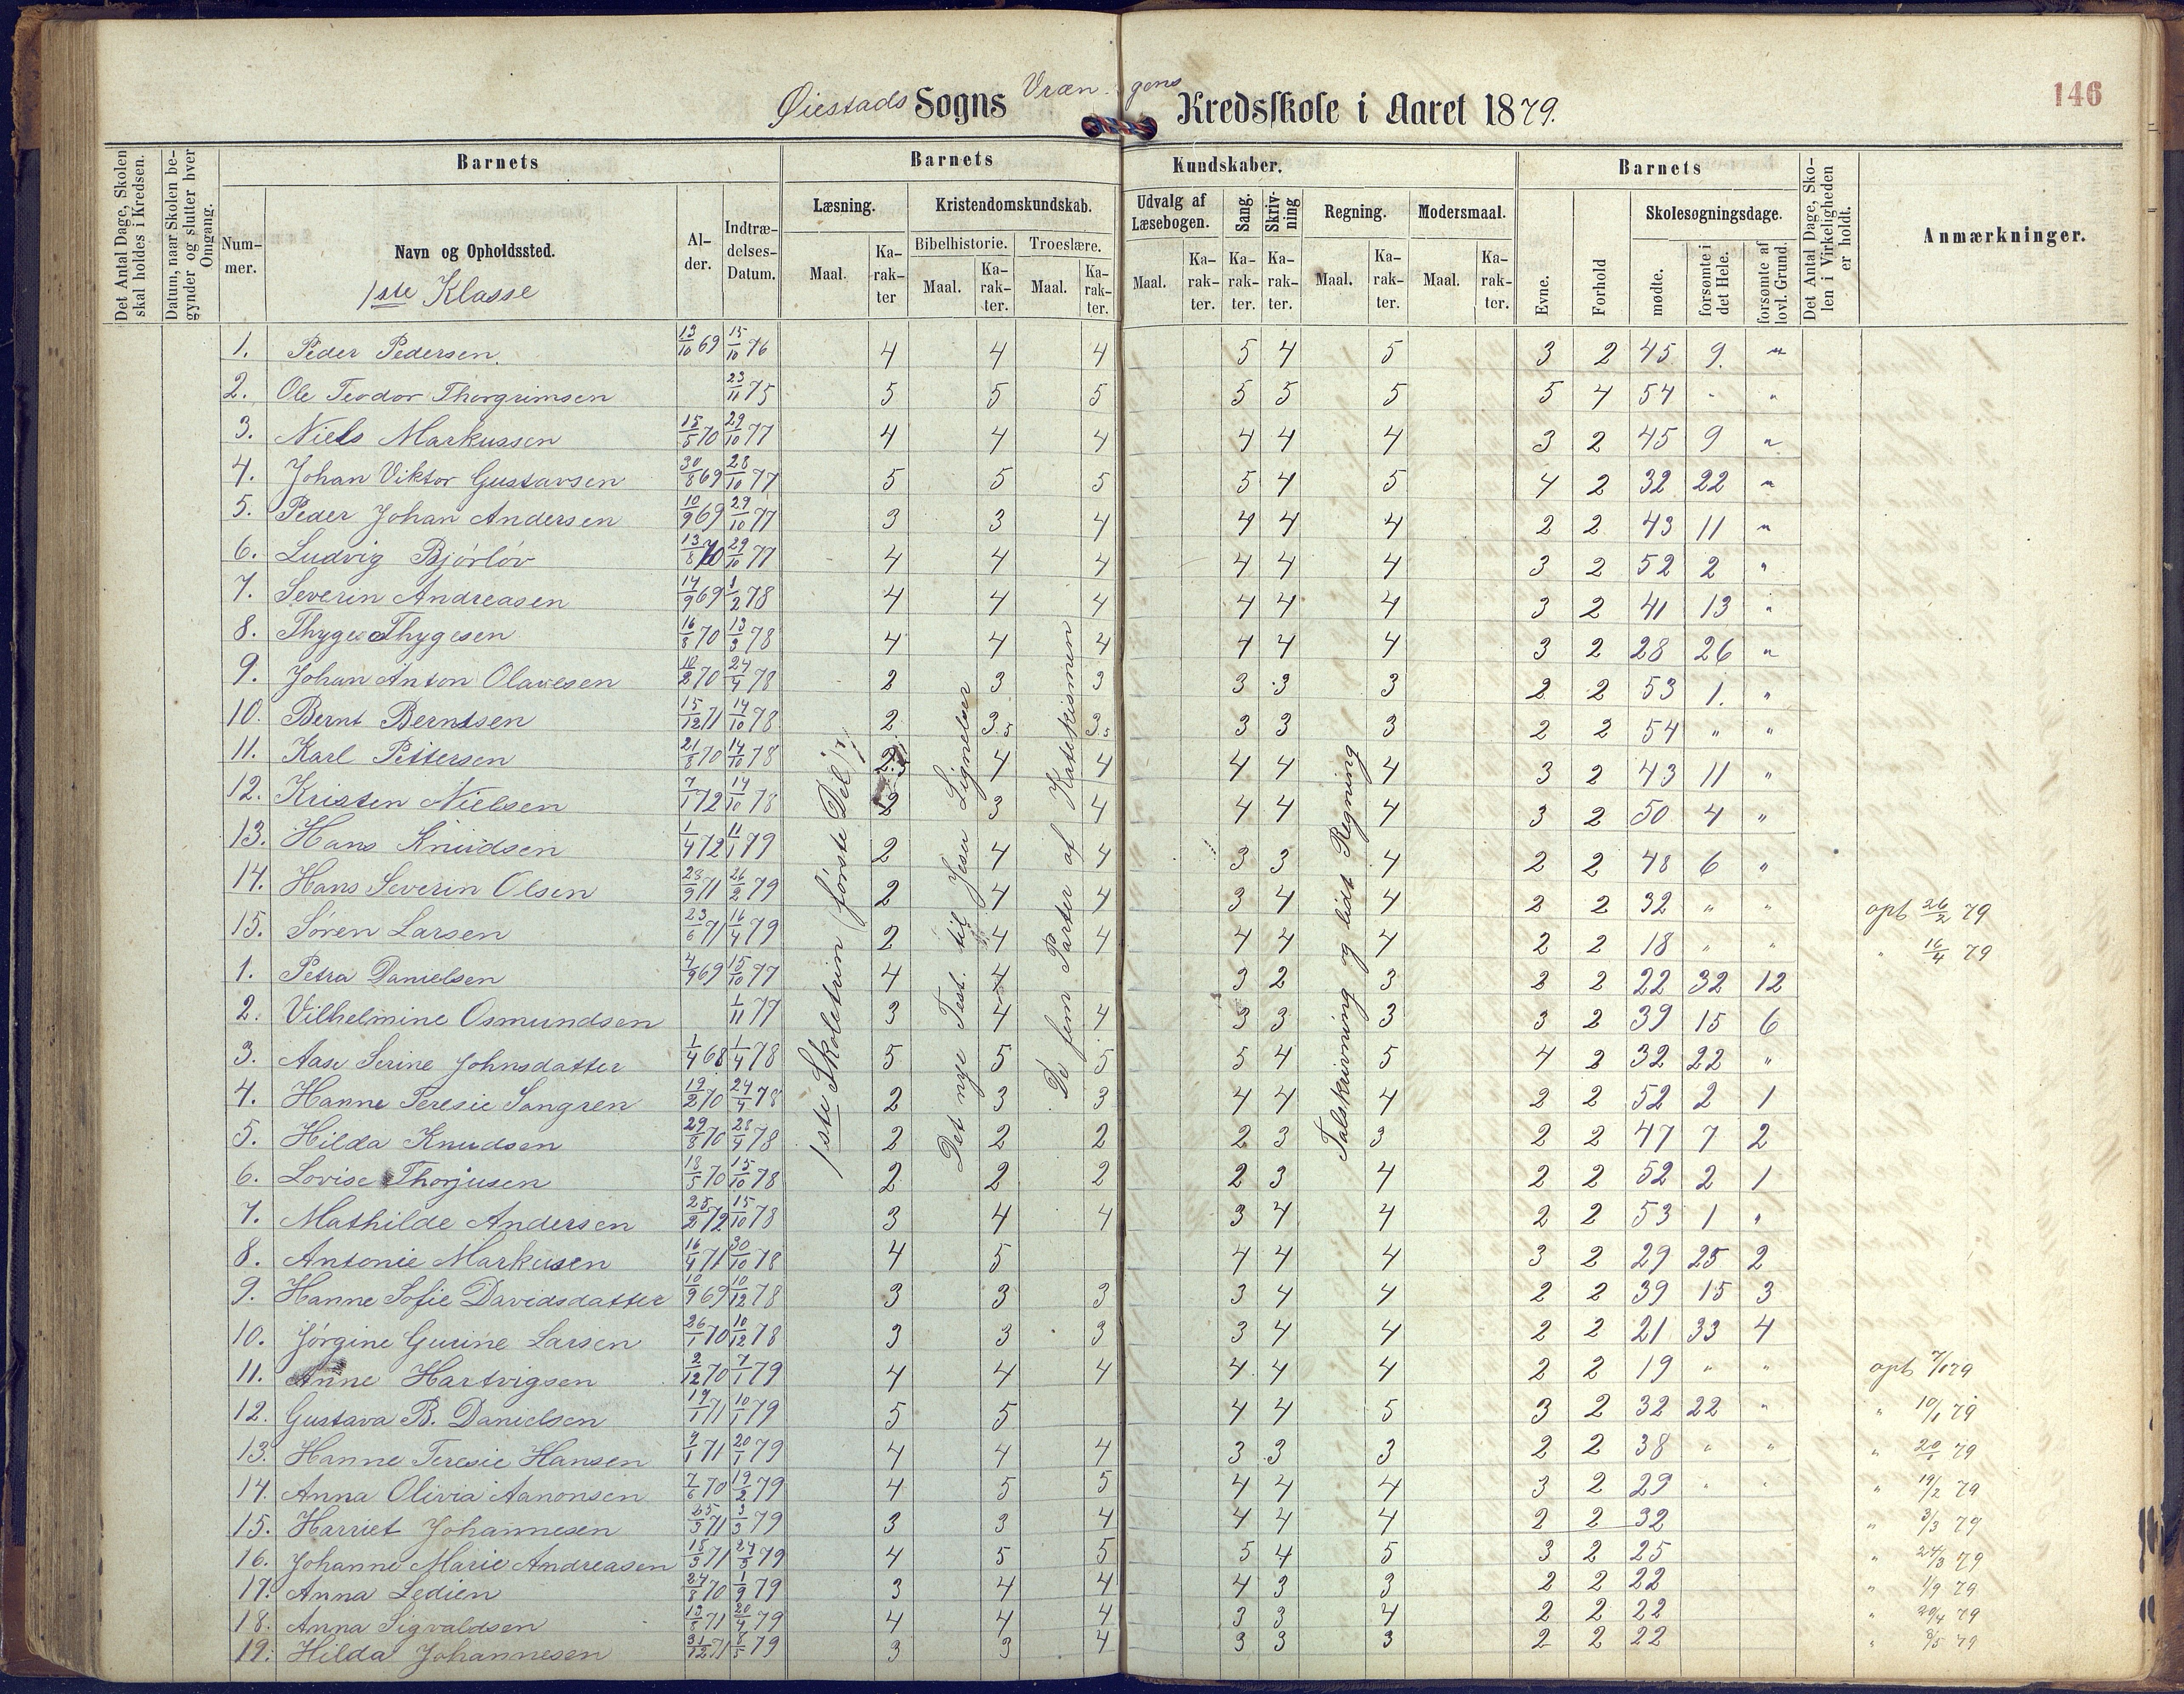 146
Øiestads Sogns Vræn gens Kredsskole i Aaret 1879.
Det Antal Dage, Skolen skal holdes i Kredsen.
Datum, naar Skolen begynder og slutter hver Omgang.
Barnets
Barnets
Kundskaber.
Barnets
Det Antal Dage, Skolen i Virkeligheden er holdt.
Anmærkninger.
Nummer.
Navn og Opholdssted.
Alder.
Indtrædelses-Datum.
Læsning.
Kristendomskundskab.
Udvalg af Læsebogen.
Sang.
Skrivning
Regning.
Modersmaal.
Evne.
Forhold
Skolesøgningsdage.
Bibelhistorie.
Troeslære.
mødte.
forsømte i det Hele.
forsømte af lovl. Grund.
Maal.
Karakter
Maal.
Karakter.
Maal.
Karakter.
Maal.
Karakter.
Karakter.
Karakter.
Maal.
Karakter.
Maal.
Karakter.
1ste Klasse
1ste Skoletrin (første Del)
Det nye Test. til Jesu Lignelser
De fem Parter af Katekismen
Talskrivning og lidt Regning
1. Peder Pedersen 13/10 69 15/10 76 4 4 4 5 4 5 3 2 45 9. "
2. Ole Teodor Thorgrimsen 23/11 75 5 5 5 5 5 5 5 4 54 " "
3. Niels Markussen 15/5 70 29/10 77 4 4 4 4 4 4 3 2 45 9 "
4. Johan Viktor Gustavsen 30/8 69 28/10 77 5 5 5 5 4 5 4 2 32 22 "
5. Peder Johan Andersen 10/9 69 29/10 77 3 3 4 4 4 4 2 2 43 11 "
6. Ludvig Bjórlöv 13/8 70 29/10 77 4 4 4 4 4 4 3 2 52 2 "
7. Severin Andreasen 14/9 69 1/2 78 4 4 4 4 4 4 3 2 41 13 "
8. Thyge Thygesen 16/8 70 13/3 78 4 4 4 4 4 4 3 2 28 26 "
9. Johan Anton Olavesen 10/2 70 24/4 78 2 3 3 3 3 3 2 2 53 1. "
10. Bernt Berntsen 15/12 71 14/10 78 2 3.5 3.5 3 3 3 2 2 54 " "
11. Karl Pettersen 21/8 70 14/10 78 4 4 4 4 4 3 2 43 11 "
12. Kristen Nielsen 7/1 72 14/10 78 2 3 4 4 4 4 3 2 50 4 "
13. Hans Knudsen 1/4 72 11/1 79 2 4 4 3 3 4 2 2 48 6 "
14. Hans Severin Olsen 23/9 71 26/2 79 2 4 4 3 4 4 2 2 32 " " opt 26/2 79
15. Søren Larsen 23/6 71 16/4 79 2 4 4 4 4 4 2 2 18 " " " 16/4 79
1. Petra Danielsen 4/9 69 15/10 77 4 4 3 2 3 2 2 22 32 12
2. Vilhelmine Osmundsen 1/11 77 3 4 4 3 3 3 3 2 39 15 6
3. Aase Serine Johnsdatter 1/4 68 1/4 78 5 5 5 5 4 5 4 2 32 22 "
4. Hanne Teresie Sangren 19/2 70 24/4 78 2 3 3 4 4 4 2 2 52 2 1
5. Hilda Knudsen 29/8 70 28/4 78 2 2 2 2 3 3 2 2 47 7 2
6. Lovise Thorjusen 18/5 70 15/10 78 2 2 2 2 3 4 2 2 52 2 1
7. Mathilde Andersen 25/2 72 15/10 78 3 4 4 3 4 4 2 2 53 1 "
8. Antonie Markusen 16/4 71 30/10 78 4 5 4 4 4 3 2 29 25 2
9. Hanne Sofie Davidsdatter 10/9 69 10/12 78 3 3 3 3 4 4 2 2 39 15 3
10. Jórgine Gurine Larsen 26/1 70 10/12 78 3 3 3 3 4 4 2 2 21 33 4
11. Anne Hartvigsen 2/12 70 7/1 79 4 4 4 4 4 4 2 2 19 " " opt 7/1 79
12. Gustava B. Danielsen 19/1 71 10/1 79 5 5 4 4 5 3 2 32 22 " " 10/1 79
13. Hanne Teresie Hansen 9/1 71 20/1 79 4 4 4 3 3 3 2 2 38 " " " 20/1 79
14. Anna Olivia Aanonsen 7/6 70 19/2 79 4 5 5 4 4 4 3 2 29 " " " 19/2 79
15. Harriet Johannesen 25/3 71 3/3 79 3 3 4 4 4 4 2 2 32 " 3/3 79
16. Johanne Marie Andreasen 18/3 71 24/3 79 4 5 5 5 4 5 3 2 25 " 24/3 79
17. Anna Ledien 24/8 70 1/9 79 3 4 4 4 3 3 2 2 22 " 1/9 79
18. Anna Sigvaldsen 13/8 71 20/4 79 4 4 4 3 3 4 2 2 22 " 20/4 79
19. Hilda Johannesen 31/12 71 8/5 79 3 3 4 3 3 3 2 2 22 " 8/5 79